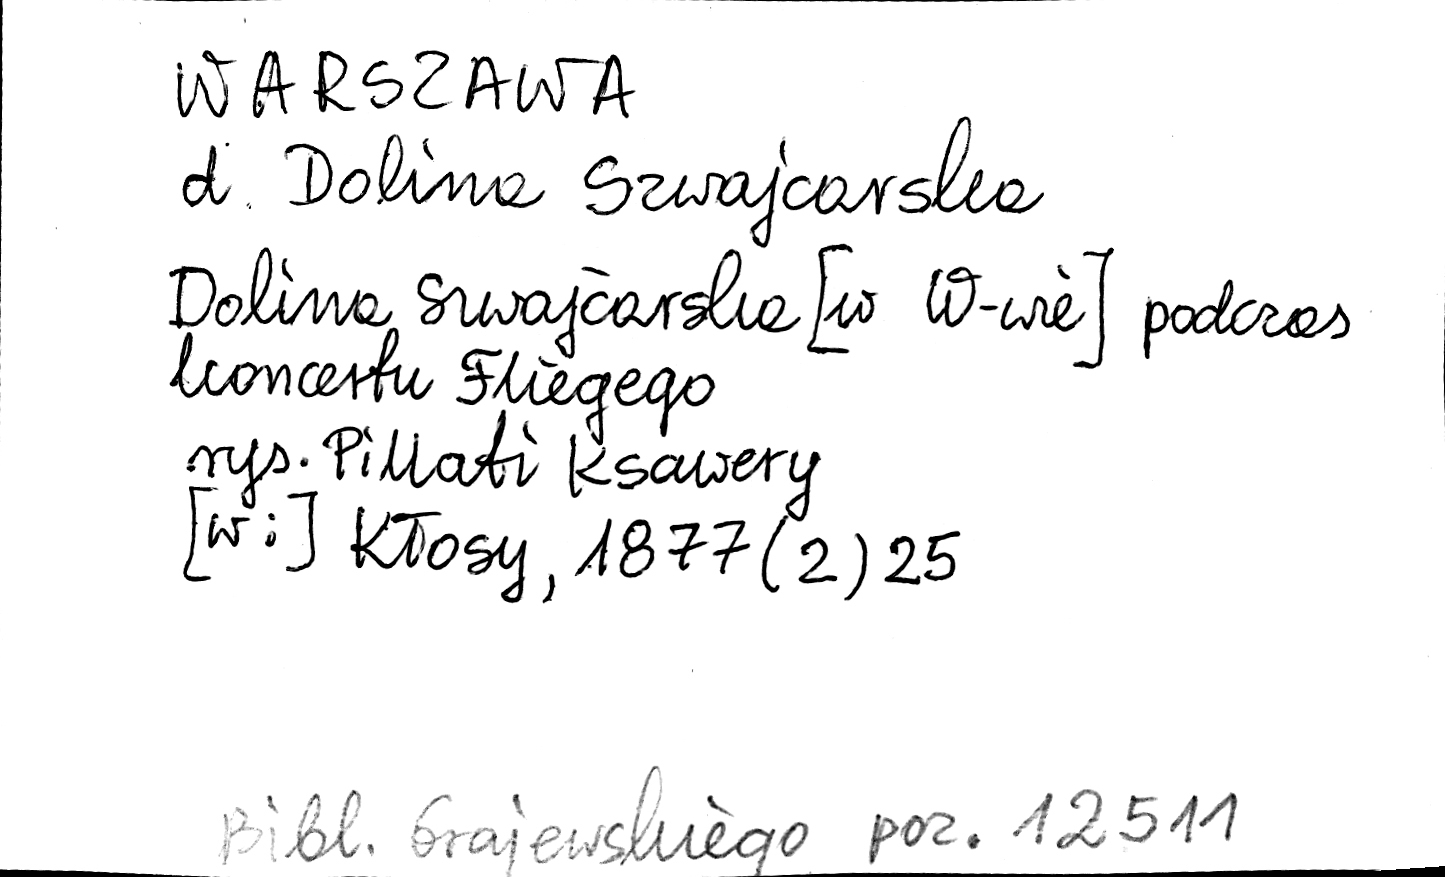 WARSZAWA
d. Dolina Szwajcarska
Dolina Szwajcarska [w W-wie] podczas
koncertu Fliegego
rys. Pillati Ksawery
[w:] Kłosy, 1877(2)25
Bibl. Grajewskiego poz. 12511